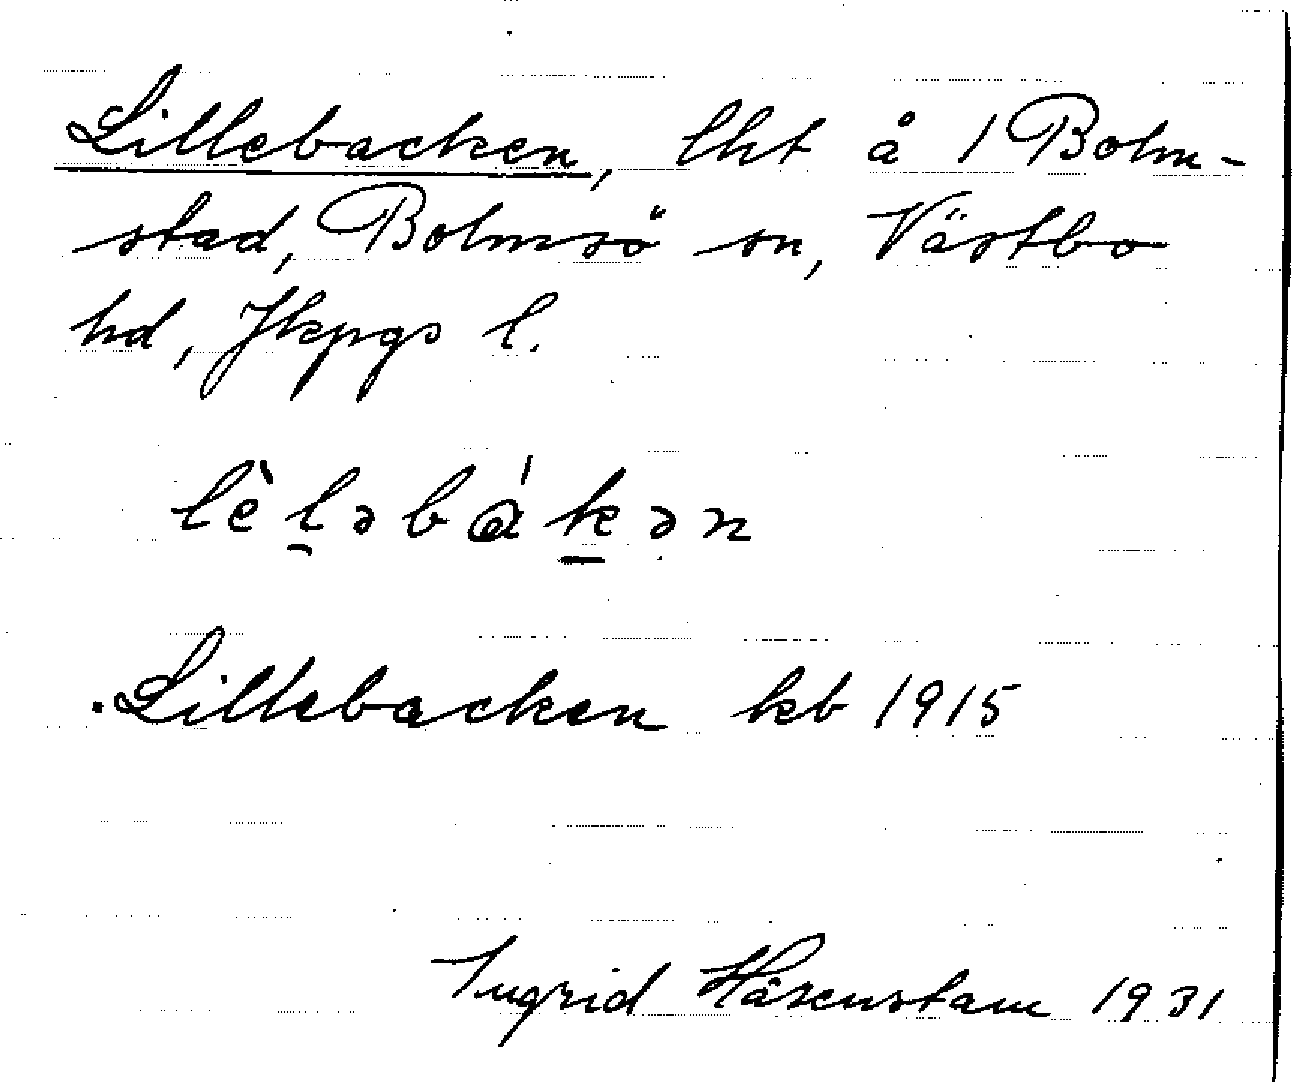 Lillebacken, lht å 1 Bolm-
stad, Bolmsö sn, Västbo
hd, Jkpgs l.
lèl̠əbák̠ən
Lillebacken kb 1915
Ingrid Håkenstam 1931